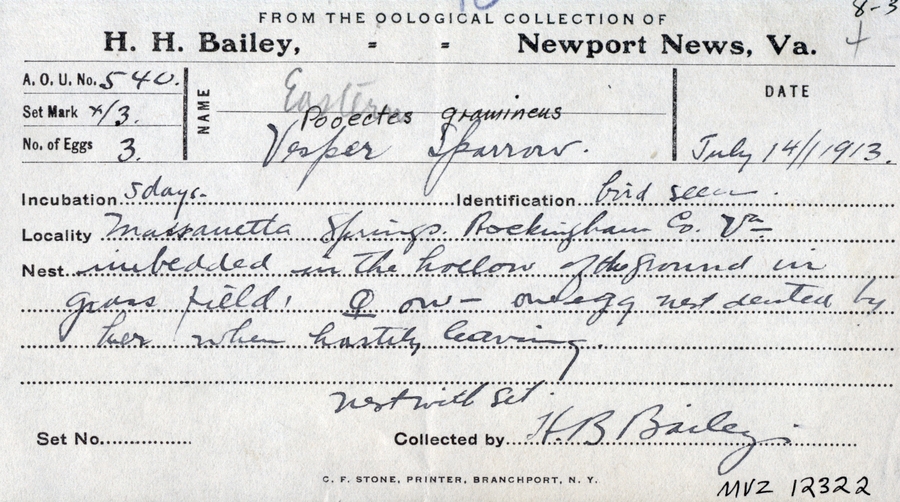 8-3
FROM THE OOLOGICAL COLLECTION OF
H. H. Bailey, = = Newport News, Va.
A. O. U. No. 540.
Set Mark */3.
No. of Eggs 3.
NAME
Eastern
Pooectes gramineus
Vesper Sparrow.
DATE
July 14/1913.
Incubation 5 days. Identification bird seen.
Locality Massanetta Springs. Rockingham Co. Va
Nest imbedded in the hollow of the ground in
grass field. ♀ on — one egg nest dented by
her when hastily leaving.
nest with set.
Set No. Collected by H. B Bailey.
C. F. STONE, PRINTER, BRANCHPORT, N. Y.
MVZ 12322